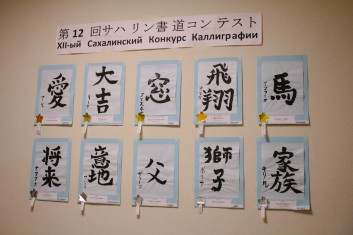 第12回サハリン書道コンテスト
XII-ый Сахалинский Конкурс Каллиграфии
愛
大吉
窓
飛翔
馬
将来
意地
父
獅子
家族